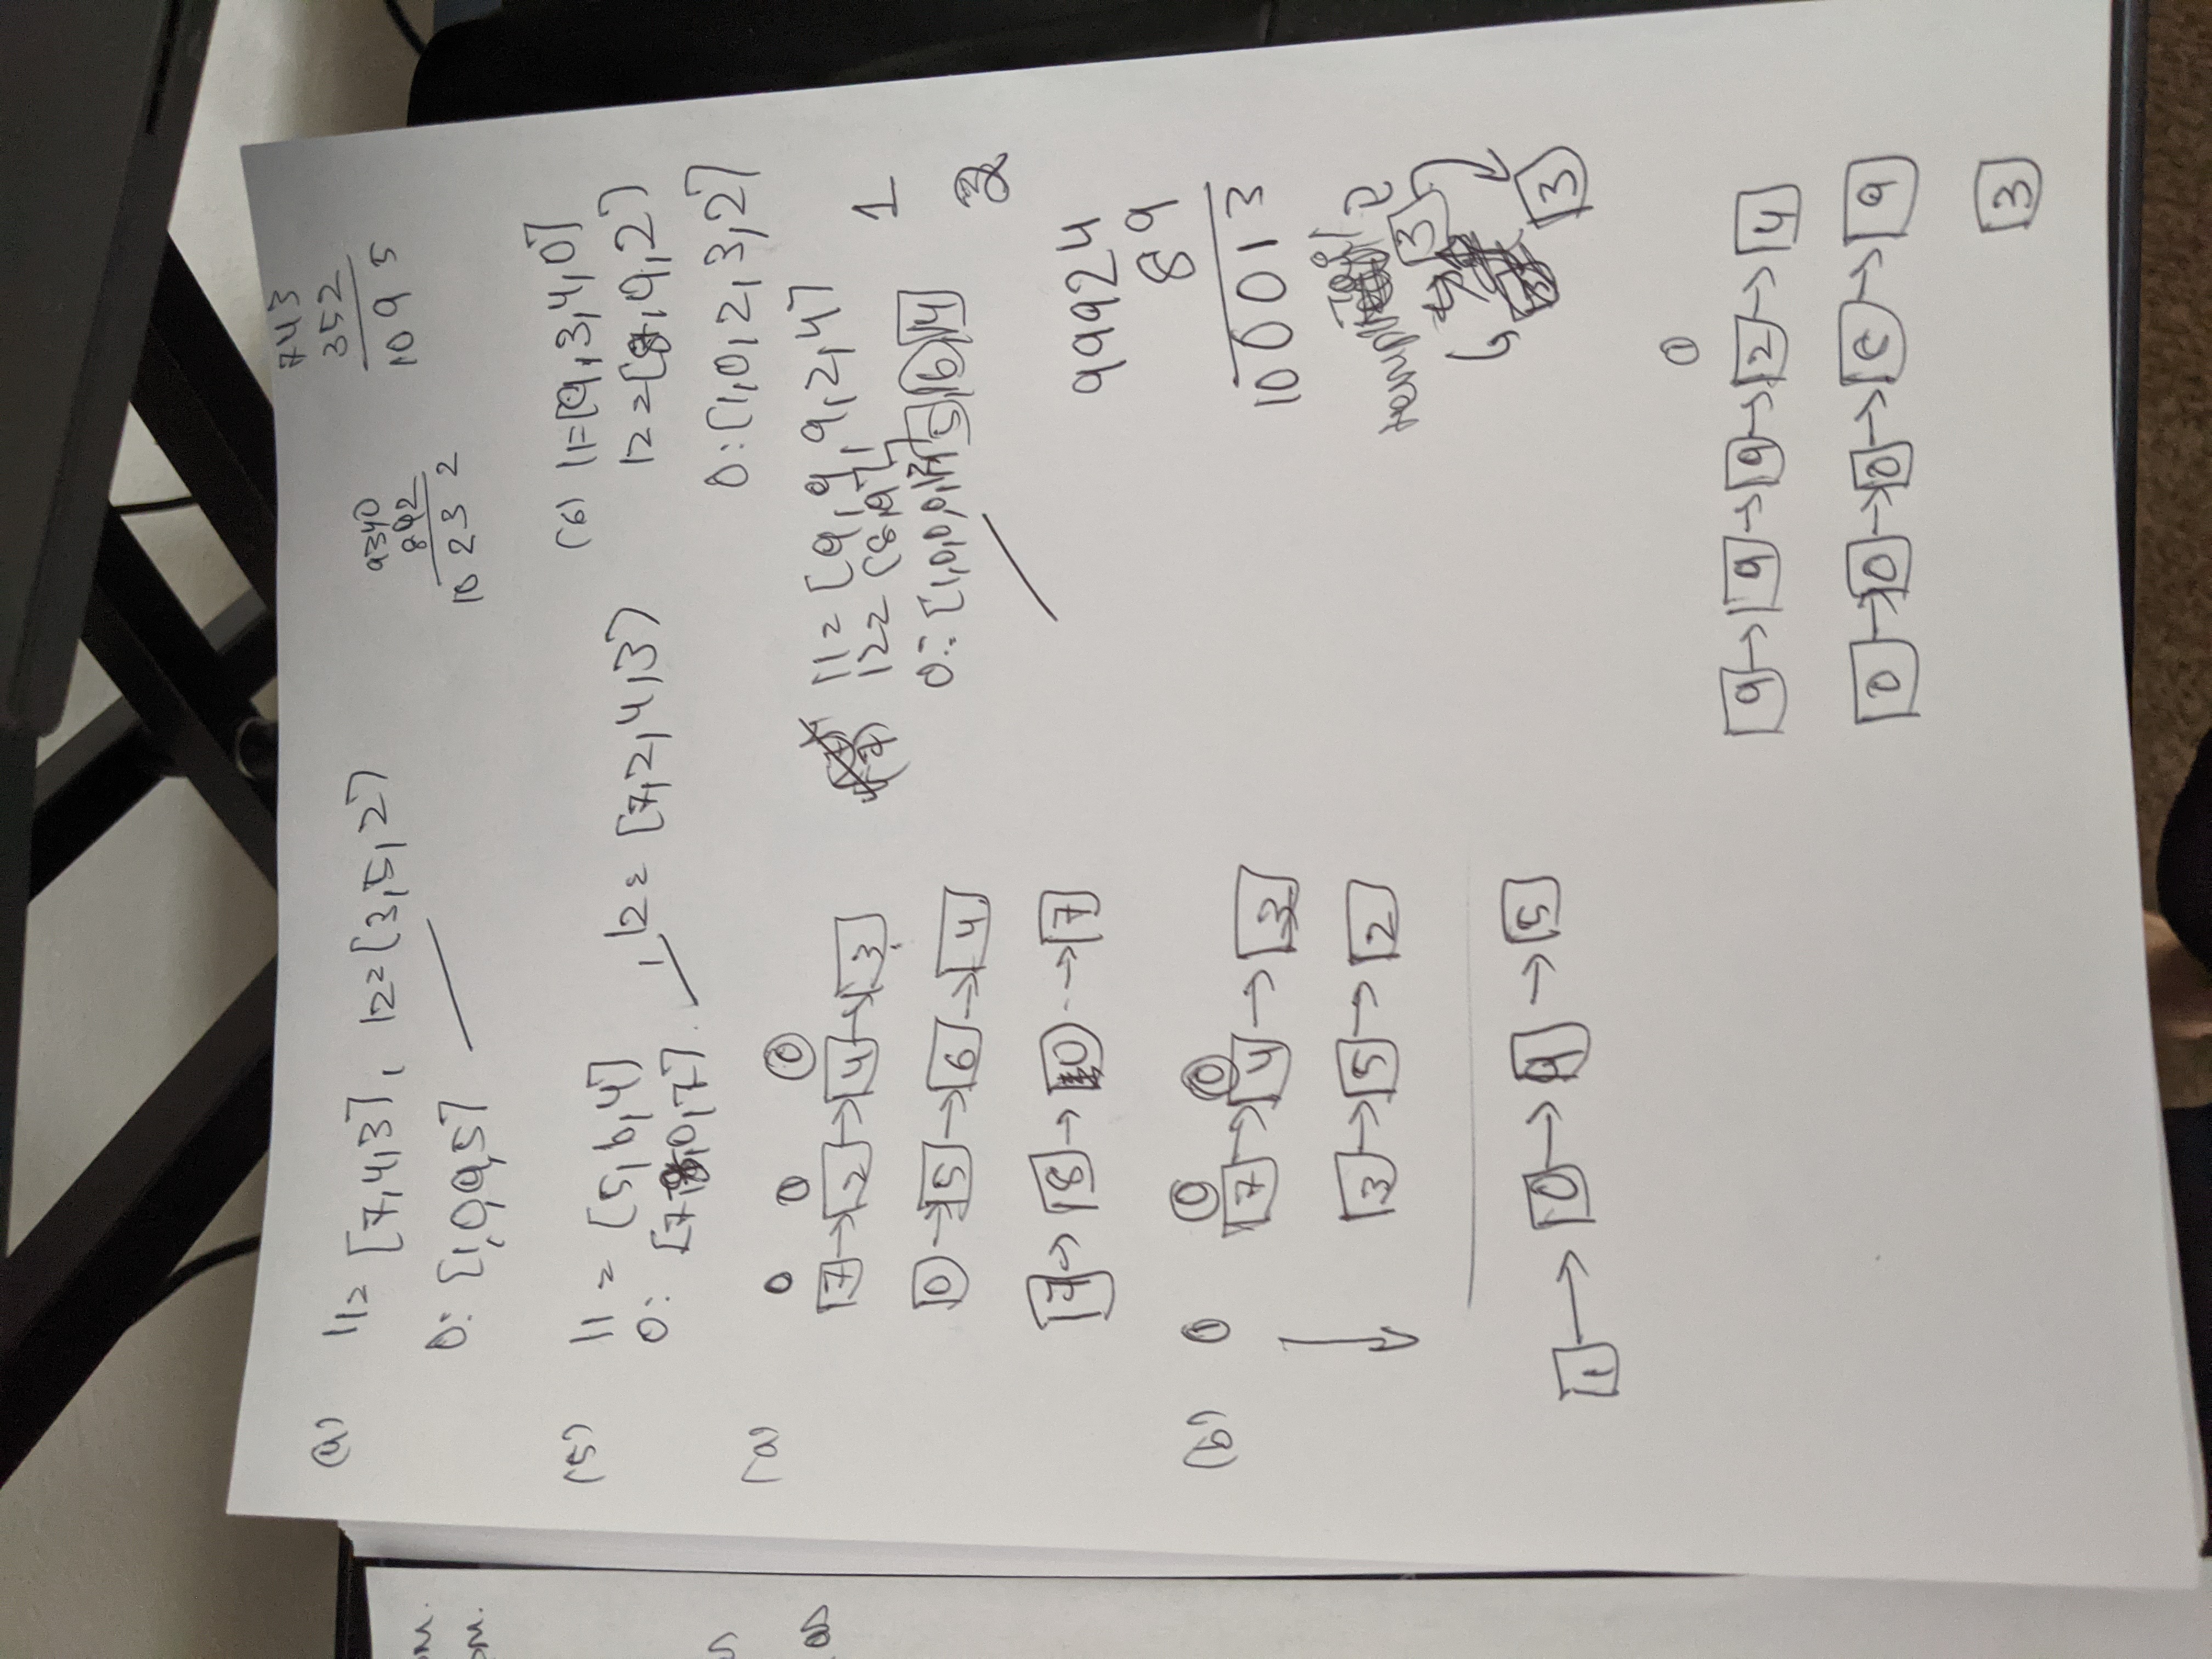 (4) l1= [7,4,3], l2= [3,5,2]
O: [1,0,9,5]
743
352
1095
9340
892
10232
(5) l1 = [5,6,4]
, l2= [7,2,4,3]
O: [7,8,0,7]
(6) l1=[9,3,4,0]
l2=[8,9,2]
O:[1,0,2,3,2]
(a)
0 0 0
7 → 2 → 4 → 3
0 → 5 → 6 → 4
7 → 8 → 0 → 7
(7) l1= [9,9,9,2,4]
l2= [8,9],
O: [1,0,0,0,1,3] 5 6 4
1
2
99924
89
100013
(b) 0 0 0
7 → 4 → 3
3 → 5 → 2
1 → 0 → 9 → 5
temp Tail
3
3
0
9 → 9 → 9 → 2 → 4
0 → 0 → 0 → 8 → 9
3